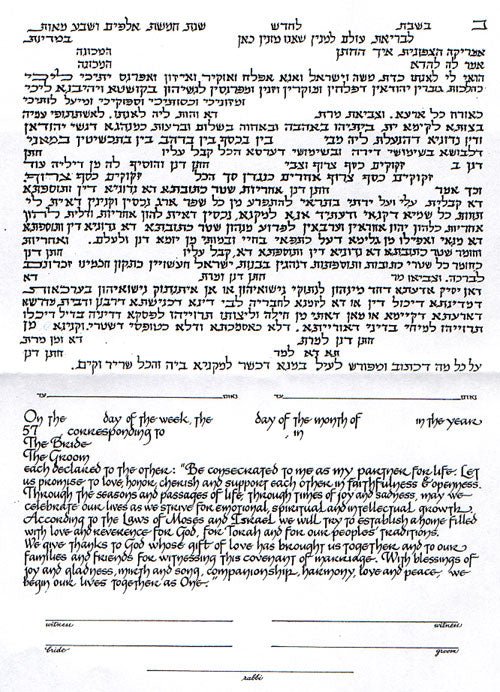 ב בשבת לחדש שנת חמשת אלפים ושבע מאות
לבריאת עולם למנין שאנו מונין כאן במדינת
אמריקה הצפונית איך החתן המכונה
אמר לה להדא המכונה
הואי לי לאנתו כדת משה וישראל ואנא אפלח ואוקיר ואיזון ואפרנס יתיכי ליכי
כהלכות גוברין יהודאין דפלחין ומוקרין וזנין ומפרנסין לנשיהון בקושטא ויהיבנא ליכי
ומזוניכי וכסותיכי וסיפוקיכי ומיעל לותיכי
כאורח כל ארעא. וצביאת מרת דא והות ליה לאנתו.
דין נדוניא דהנעלת ליה מבי בין בכסף בין בדהב בין בתכשיטין במאני
דלבושא בשימושי דירה ובשימושי דערסא הכל קבל עליו חתן
דנן ב זקוקים כסף צרוף וצבי חתן דנן והוסיף לה מן דיליה עוד
זקוקים כסף צרוף אחרים כנגדן סך הכל זקוקים כסף צרוף.
וכך אמר חתן דנן אחריות שטר כתובתא דא נדוניא דין ותוספתא
דא קבלית עלי ועל ירתי בתראי להתפרע מן כל שפר ארג נכסין וקנינין דאית לי
תחות כל שמיא דקנאי ודעתיד אנא למקנא. נכסין דאית להון אחריות ודלית להון
אחריות כלהון יהון אחראין וערבאין לפרוע מנהון שטר כתובתא דא נדוניא דין ותוספתא
דא מנאי ואפילו מן גלימא דעל כתפאי בחיי ובמותי מן יומא דנן ולעלם. ואחריות
וחומר שטר כתובתא דא נדוניא דין ותוספתא דא קבל עליו חתן דנן
כחומר כל שטרי כתובות ותוספתות דנהגין בבנות ישראל העשויין כתקון חכמינו זכרונם
לברכה. וצביאו מר חתן דנן ומרת דא
תרוייהו למיחי בדיני דאורייתא. דלא כאסמכתא ודלא כטופסי דשטרי. וקנינא מן
חתן דנן למרת דא ומן מרת
תא דא למר חתן דנן
על כל מה דכתוב ומפורש לעיל במנא דכשר למקניא ביה והכל שריר וקים.
נאום עד נאום עד
On the day of the week, the day of the month of in the year
57 corresponding to , in
The Bride
The Groom
each declared to the other: "Be consecrated to me as my partner for life. Let
us promise to love, honor, cherish and support each other in faithfulness & openness.
Through the seasons and passages of life, through times of joy and sadness, may we
celebrate our lives as we strive for emotional, spiritual and intellectual growth.
According to the Laws of Moses and Israel we will try to establish a home filled
with love and reverence for God, for Torah and for our peoples' traditions.
We give thanks to God whose gift of love has brought us together and to our
families and friends for witnessing this covenant of marriage. With blessings of
joy and gladness, mirth and song, companionship, harmony, love and peace, we
begin our lives together as One."
witness witness
bride groom
rabbi